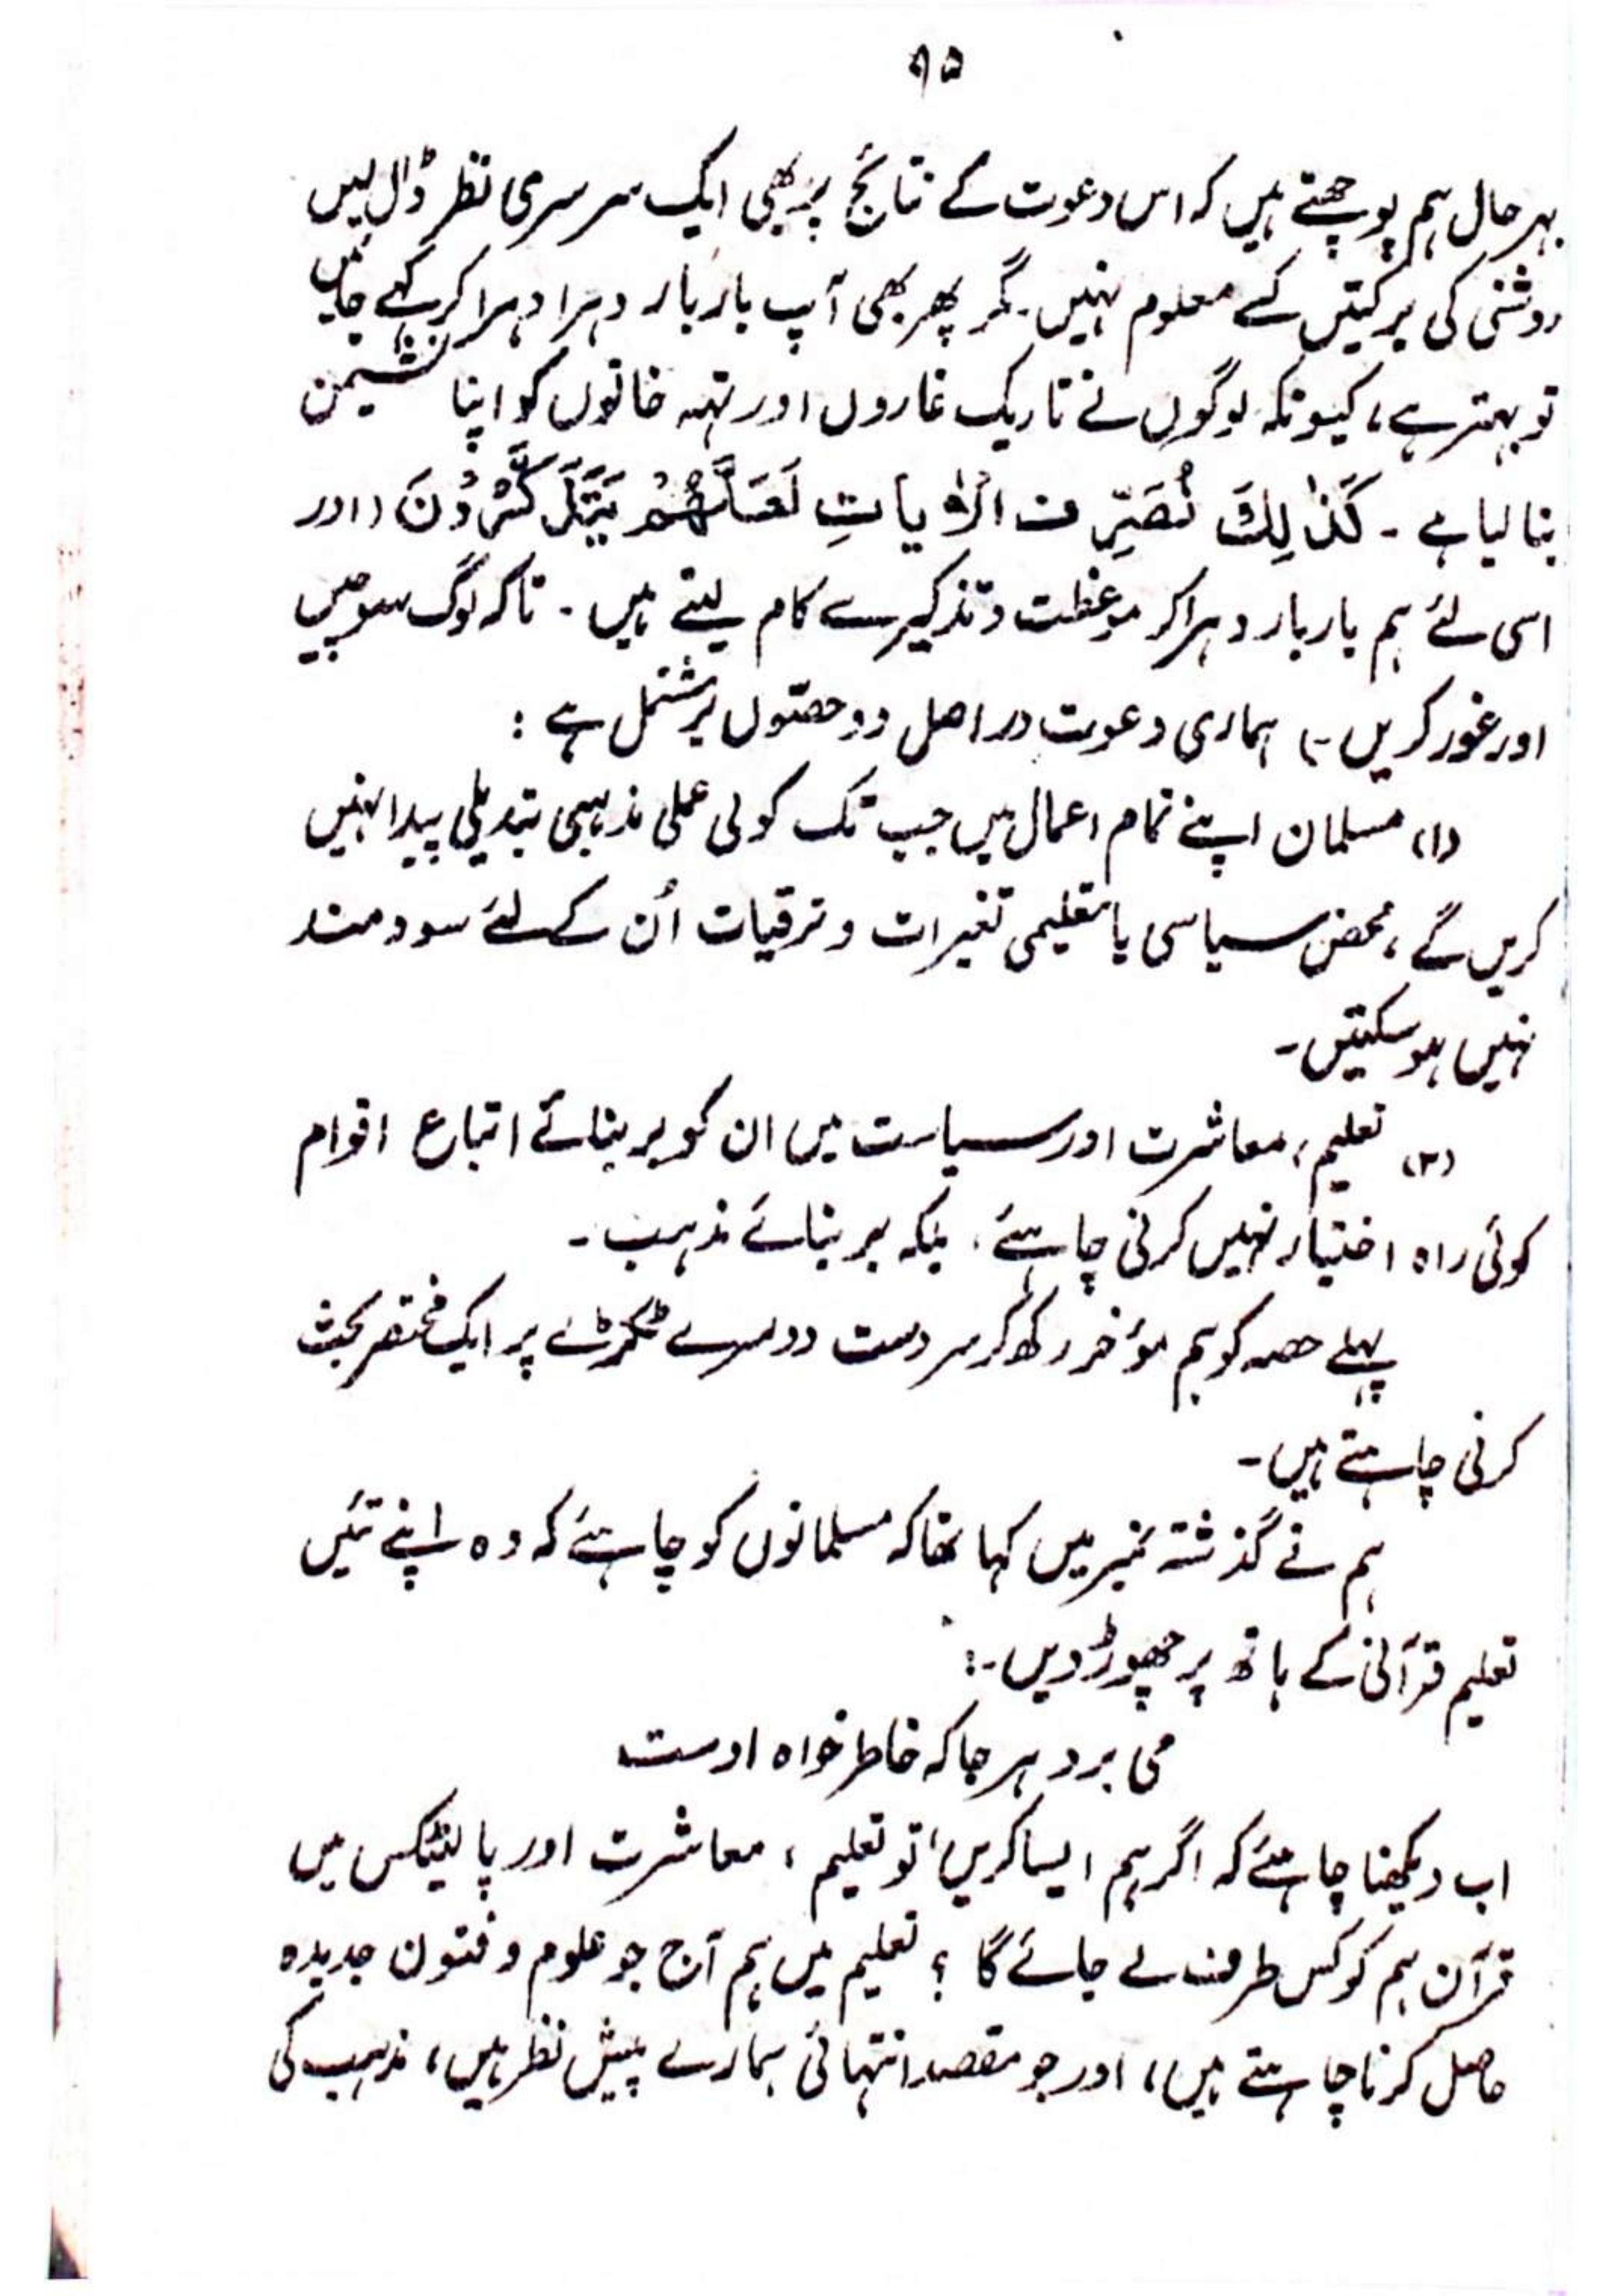 ۹۵
بہر حال ہم پوچھتے ہیں کہ اس دعوت کے نتائج پر بھی ایک سرسری نظر ڈال لیں
روشنی کی برکتیں کسے معلوم نہیں۔ مگر پھر بھی آپ بار بار دہرا دہرا کر کہے جائیں
تو بہتر ہے، کیونکہ لوگوں نے تاریک غاروں اور تہہ خانوں کو اپنا نشیمن
بنا لیا ہے ۔ کَذٰلِكَ نُصَرِّفُ الْاٰیَاتِ لَعَلَّهُمْ یَتَذَكَّرُوْنَ (اور
اسی لئے ہم بار بار دہرا کر موعظت و تذکیر سے کام لیتے ہیں ۔ تاکہ لوگ سوچیں
اور غور کریں ۔) ہماری دعوت در اصل دو حصّوں پر مشتمل ہے :
(۱) مسلمان اپنے تمام اعمال میں جب تک کوئی عملی مذہبی تبدیلی پیدا نہیں
کریں گے ، محض سیاسی یا تعلیمی تغیرات و ترقیات اُن کے لئے سود مند
نہیں ہو سکتیں ۔
(۲) تعلیم، معاشرت اور سیاست میں ان کو بر بنائے اتباع اقوام
کوئی راہ اختیار نہیں کرنی چاہئے، بلکہ بر بنائے مذہب ۔
پہلے حصہ کو ہم مؤخر رکھ کر سردست دوسرے ٹکڑے پر ایک مختصر بحث
کرنی چاہتے ہیں ۔
ہم نے گذشتہ نمبر میں کہا تھا کہ مسلمانوں کو چاہئے کہ وہ اپنے تئیں
تعلیم قرآنی کے ہاتھ پر چھوڑ دیں ۔:
می برد ہر جا کہ خاطر خواہ اوست
اب دیکھنا چاہئے کہ اگر ہم ایسا کریں، تو تعلیم ، معاشرت اور پالیٹکس میں
قرآن ہم کو کس طرف لے جائے گا ؟ تعلیم میں ہم آج جو علوم و فنون جدیدہ
حاصل کرنا چاہتے ہیں، اور جو مقصد انتہائی ہمارے پیش نظر ہیں، مذہب کی